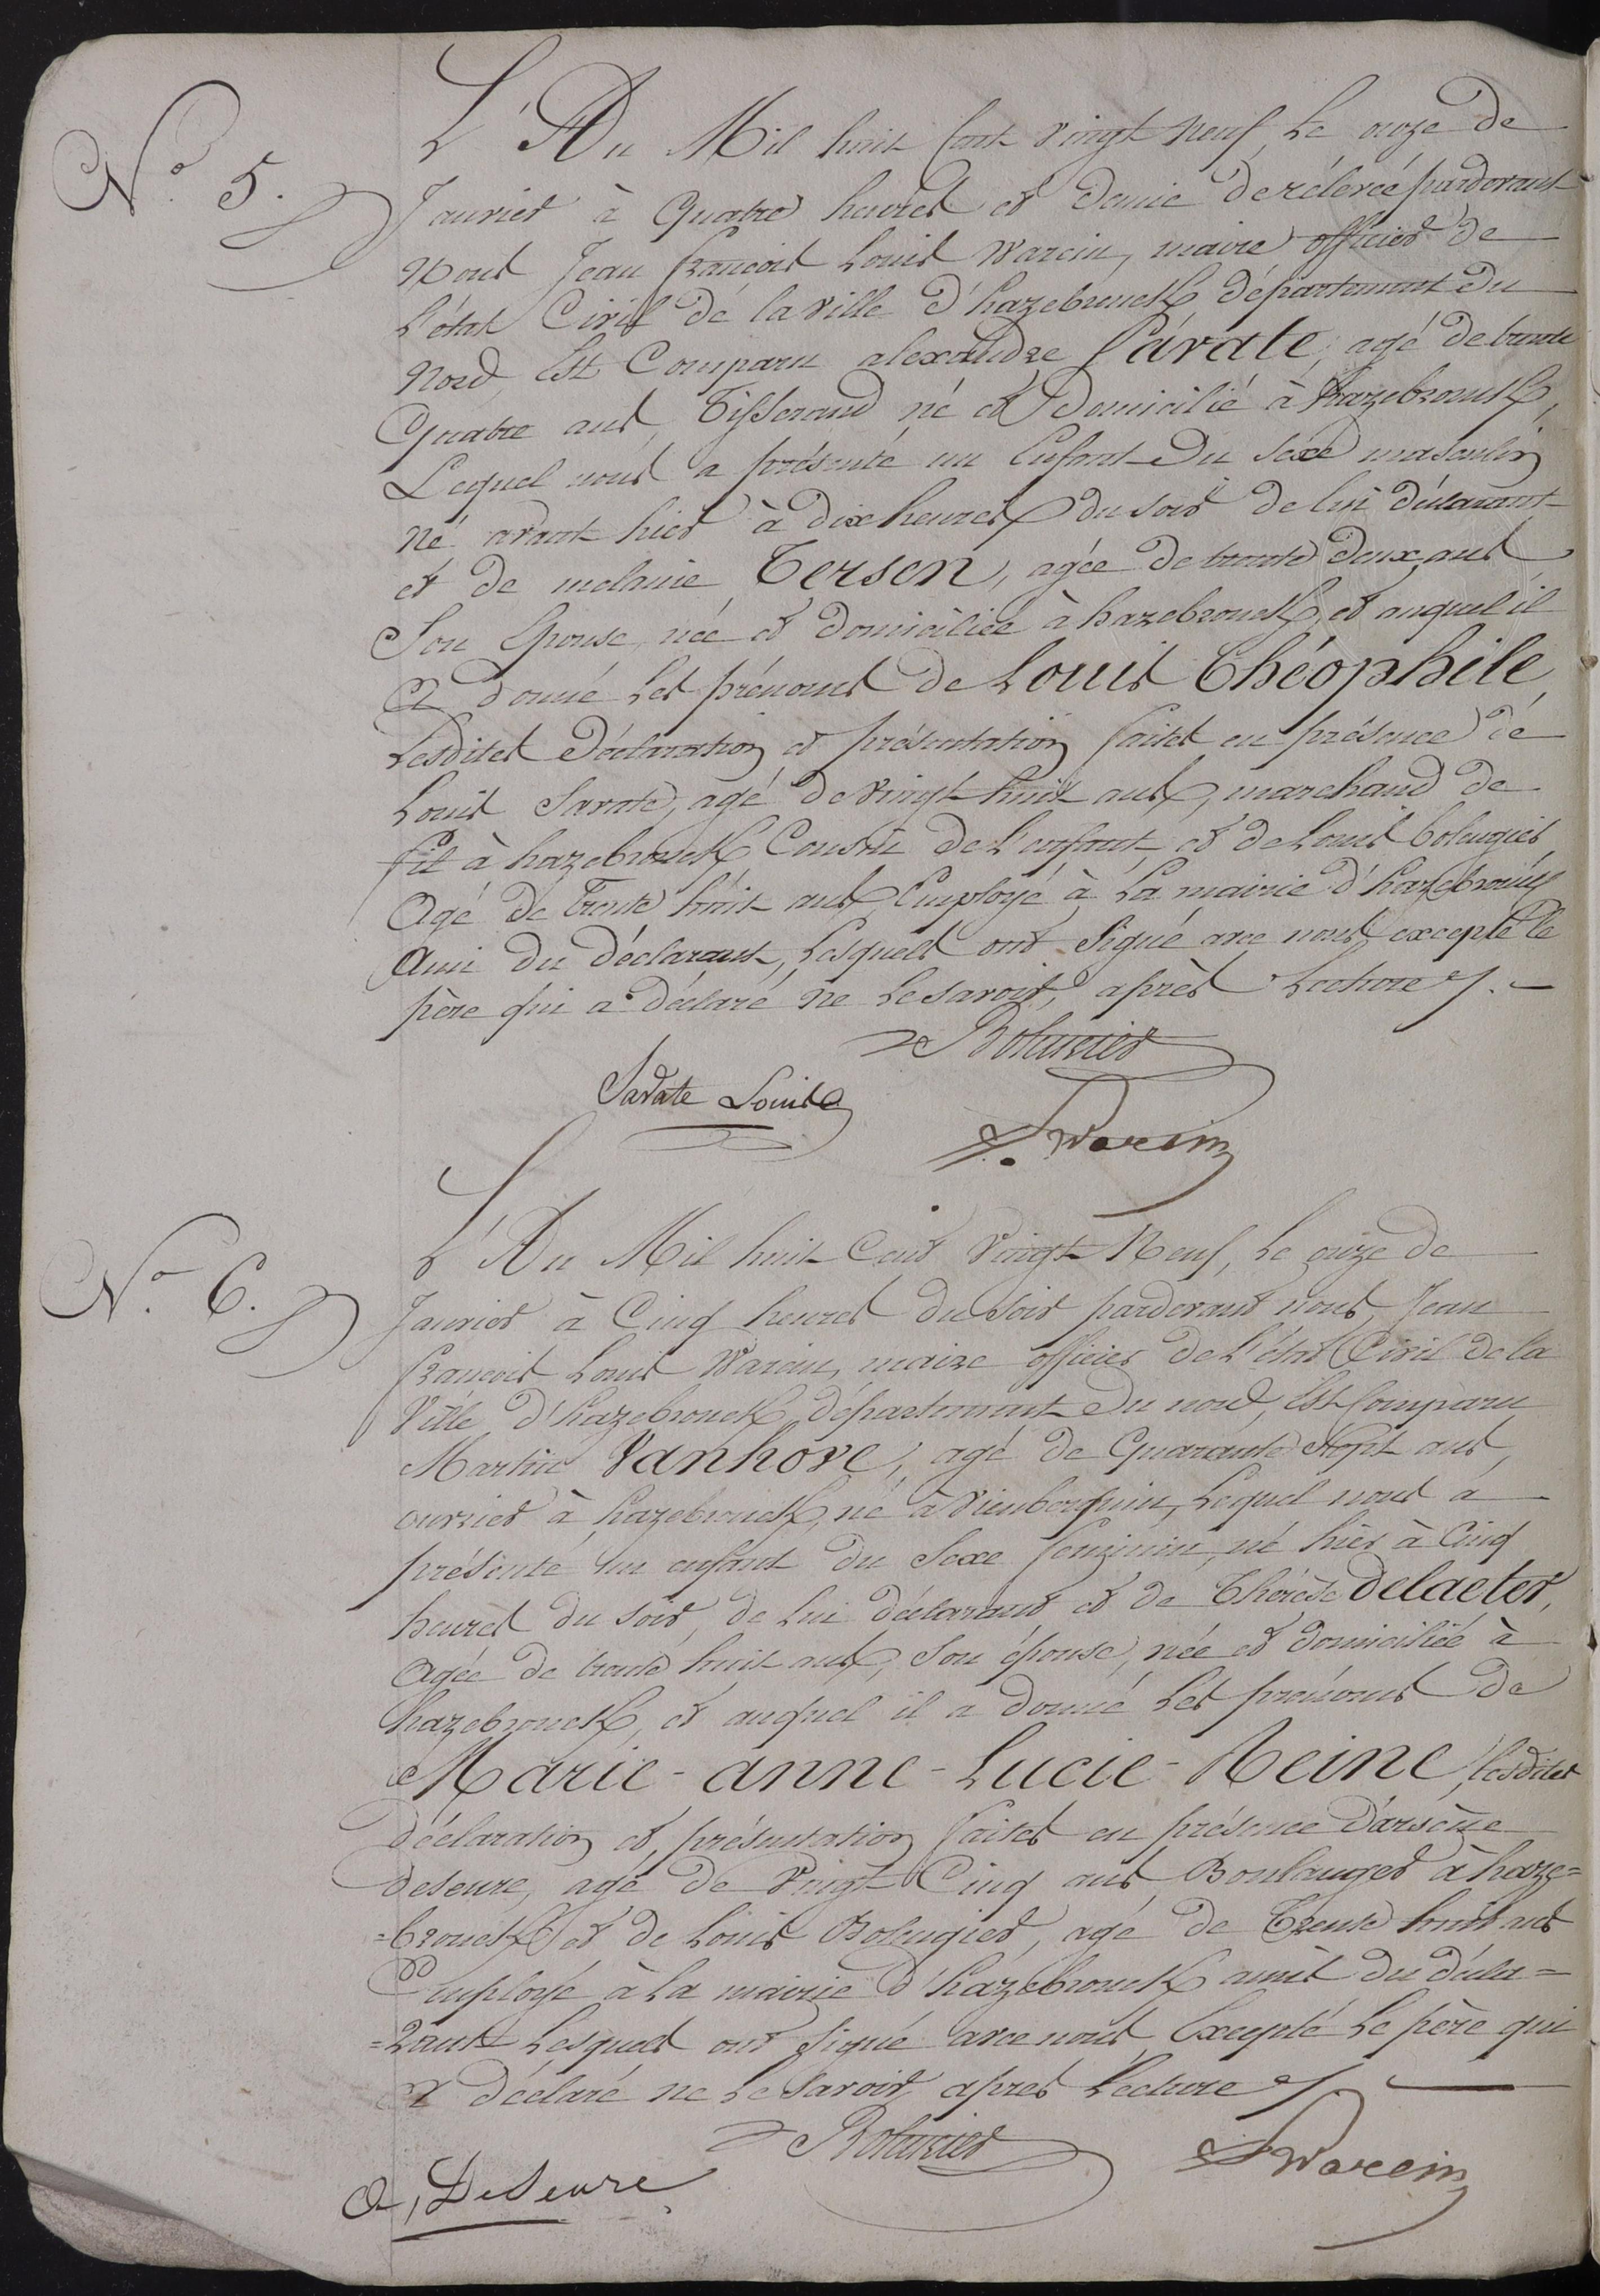 N.° 5.
L'An Mil huit Cent vingt neuf, le onze de
Janvier à quatre heures et demie de rélevée pardevant
Nous Jean françois Louis Warein, maire officier de
L'état Civil de la ville d'hazebrouck, département du
Nord, Est Comparu alexandre Savate, agé de trente
quatre ans, Tisserand né et Domicilié à hazebrouck,
Lequel nous a présenté un Enfant Du sexe masculin
né avant hier à dix heures du soir de lui déclarant
et de mélanie Tersen, agée de trente deux ans
Son Epouse, née et domiciliée à hazebrouck, et auquel il
a donné les prénoms de Louis Théophile,
Lesdites Déclaration et présentation faites en présence de
Louis Savate, agé de vingt huit ans, marchand de
fil à hazebrouck Cousin de l'enfant, et de Louis bolengier
Agé de Trente huit ans, Employé à la mairie d'hazebrouck
Ami du déclarant, Lesquels ont Signé avec nous, excepté le
père qui a déclaré ne le savoir, après Lecture ./.
Bolengier
Savate Louis
Warein
N.° 6.
L'An Mil huit Cent Vingt Neuf, le onze de
Janvier à Cinq heures du soir pardevant nous Jean
françois Louis Warein, maire officier de l'état Civil de la
Ville d'hazebrouck, département Du nord, Est Comparu
Martin Vanhove, agé de Quarante Sept ans,
ouvrier à hazebrouck, né à Vieuberquin, Lequel nous a
présenté un enfant du Sexe féminin, né hier à Cinq
heures du soir, de lui déclarant et de Thérèse Delaeter,
Agée de trente huit ans, Son épouse, née et domiciliée à
hazebrouck, et auquel il a donné les prénoms de
Marie-anne-Lucie-Reine, Lesdites
déclaration et présentation faites en présence D'arsène
deseure, agé de Vingt Cinq ans Boulanger à haze=
=brouck et de Louis Bolengier, agé de Trente huit ans
Employé à la mairie d'hazebrouck amis du décla=
=rant Lesquels ont Signé avec nous, Excepté le père qui
a déclaré ne le Savoir, après Lecture ./.
Bolengier
Warein
A, DeSeure